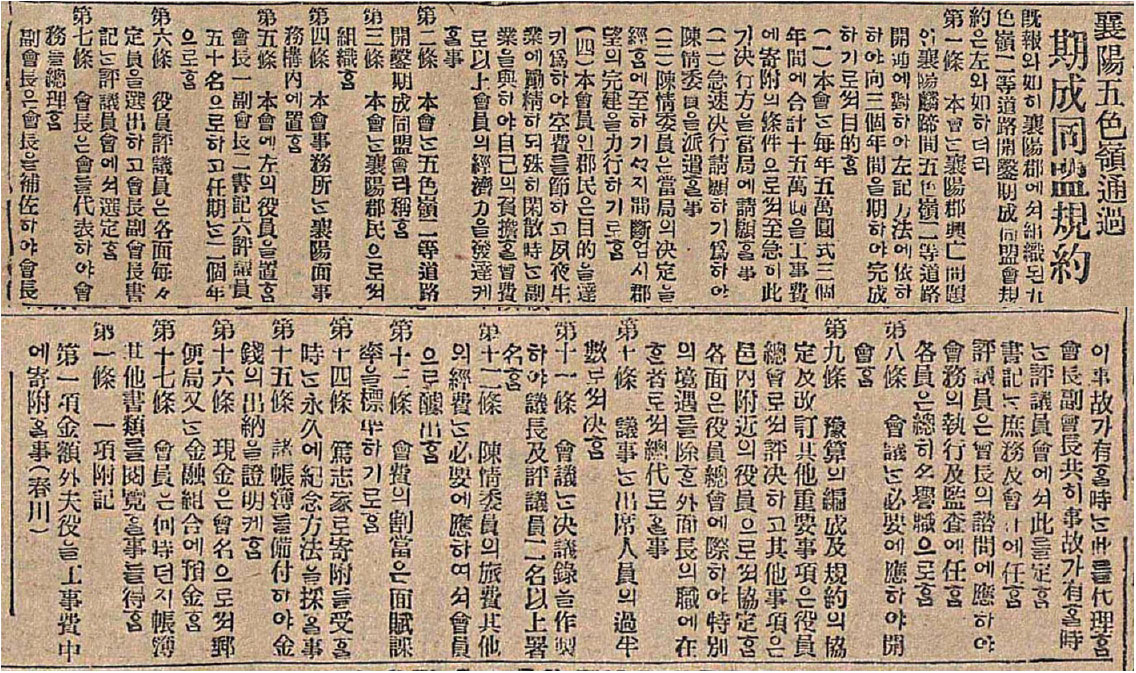 襄陽五色嶺通過
期成同盟規約
旣報와如히襄陽郡에서組織된五
色嶺二等道路開鑿期成同盟會規
約은左와如하더라
第一條 本會는襄陽郡興亡問題
인襄陽麟蹄間五色嶺一等道路
開通에對하야左記方法에依하
야向三個年間을期하야完成
하기로써目的홈
(一)本會는每年五萬圓式三個
年間에合計十五萬圓을工事費
에寄附의條件으로써至急히此
기決行方을當局에請願홀事
(二)急速决行請願하기爲하야
陳情委員을派遣홀事
(三)陳情委員은當局의决定을
經홈에至하기서지間斷업시郡
望의完建을力行하기로홈
(四)本會員인郡民은目的을達
키爲하야空費를節하고夙夜生
業에勵精하되殊히閑散時는副
業을興하야自己의負擔홀會費
로以上會員의經濟力을發達케
홀事
第二條 本會는五色嶺一等道路
開鑿期成同盟會라稱홈
第三條 本會는襄陽郡民으로써
組織홈
第四條 本會事務所는襄陽面事
務構內에置홈
第五條 本會에左의役員을置홈
會長一副會長二書記六評議員
五十名으로하고任期는二個年
으로홈
第六條 役員評議員은各面每々
定員을選出하고會長副會長書
記는評議員會에셔選定홈
第七條 會長은會를代表하야會
務를總理홈
副會長은會長을補佐하야會長
이事故가有홀時는此를代理홈
會長副會長共히事故가有홀時
는評議員會에셔此를定홈
書記는庶務及會計에任홈
評議員은會長의諮問에應하야
會務의執行及監査에任홈
各員은總히名譽職으로홈
第八條 會議는必要에應하야開
會홈
第九條 豫算의編成及規約의協
定及改訂其他重要事項은役員
總會로써評决하고其他事項은
邑內附近의役員으로써協定홈
各面은役員總會에際하야特別
의境遇를除혼外面長의職에在
혼者로써總代로홀事
第十條 議事는出席人員의過半
數로써决홈
第十一條 會議는决議錄을作製
하야議長及評議員二名以上署
名홈
第十二條 陳情委員의旅費其他
의經費는必要에應하여써會員
으로醵出홈
第十三條 會費의割當은面賦課
率을標準하기로홈
第十四條 篤志家로寄附를受홀
時는永久에紀念方法을採홀事
第十五條 諸帳簿를備付하야金
錢의出納을證明케홈
第十六條 現金은會名으로써郵
便局又는金融組合에預金홈
第十七條 會員은何時던지帳簿
其他書類를閱覽홀事를得홈
第一條 一項附記
第一項金額外夫役을工事費中
에寄附홀事(春川)